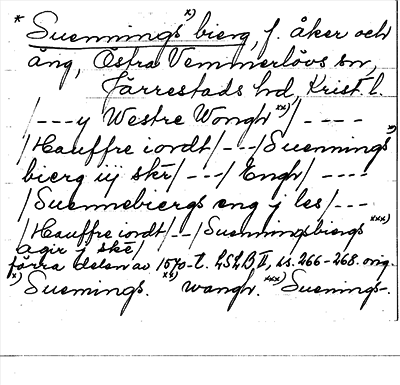 * Suennings x) bierg, f. åker och
äng, Östra Vemmerlövs sn,
Järrestads hd, Krist. l.
/---y Westre Wongh xx)/ ----
/Hauffre iordt/---/Suennings x)
bierg iij skr/---/Engh/ ----
/Suennebiergs eng j les/---
/Hauffre iordt/--/Suenningsbiergs xxx)
agir j skr/
förra delen av 1570-t. LSLB II, ss. 266-268. orig.
x) Suenings. xx) wangh. xxx) Suenings-.